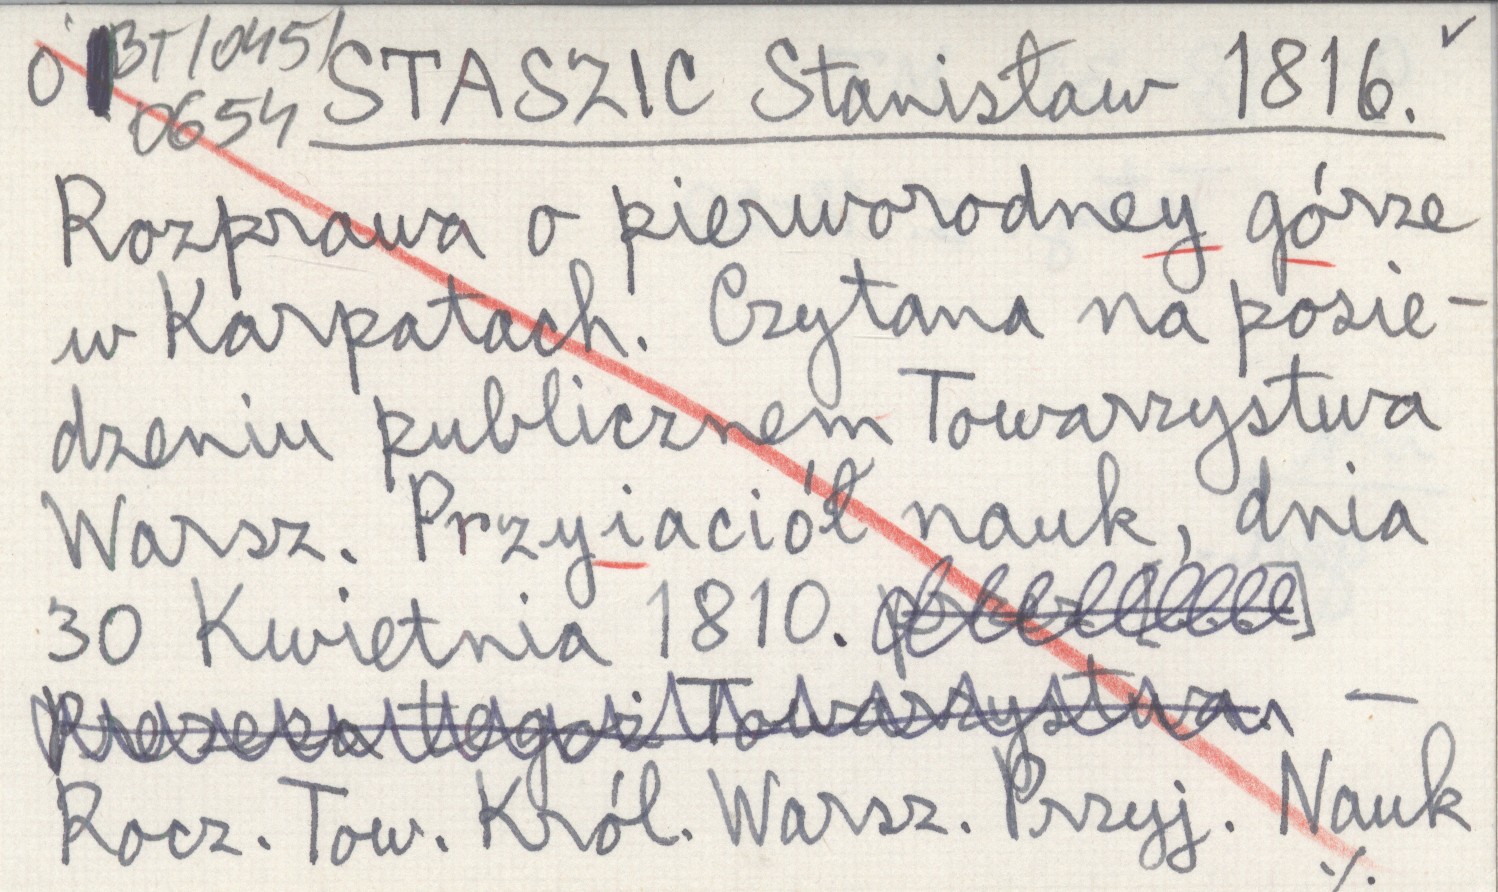 O BT/045/
0654 STASZIC Stanisław 1816.
Rozprawa o pierworodney górze
w Karpatach. Czytana na posie-
dzeniu publicznem Towarzystwa
Warsz. Przyiaciół nauk, dnia
30 Kwietnia 1810.
Prezesa tegoż Towarzystwa. —
Rocz. Tow. Król. Warsz. Przyj. Nauk
./.